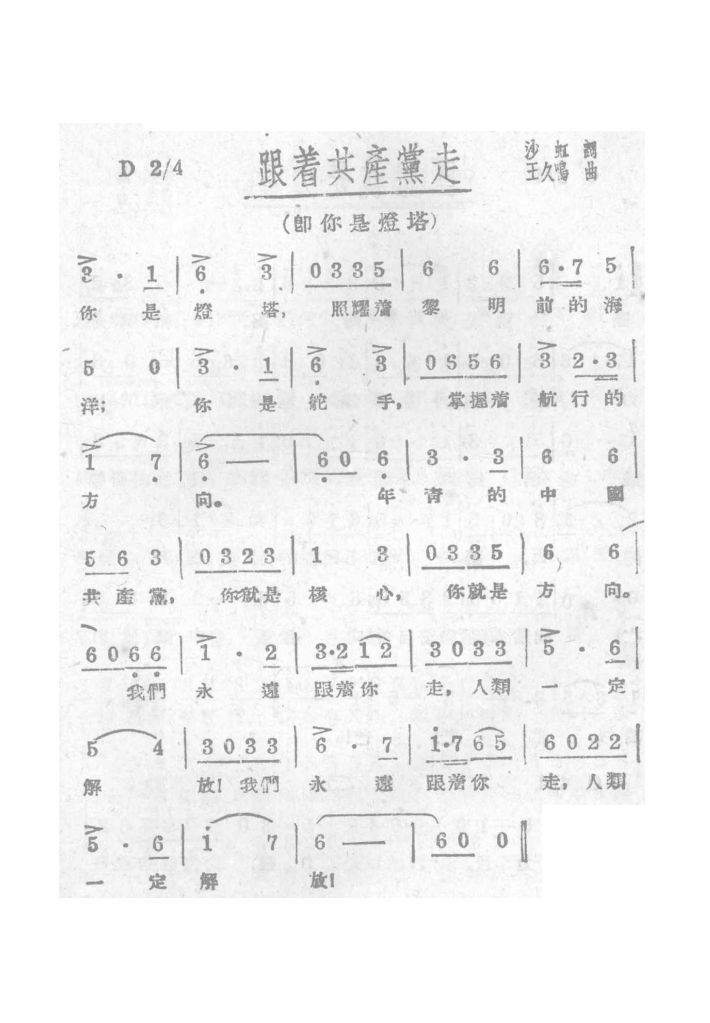 D 2/4 跟着共產黨走 沙虹詞
王久鳴曲
(即你是燈塔)
3·1|6 3|0335|6 6|6·7 5|
你是燈塔，照耀着黎明前的海
5 0|3·1|6 3|0656|3 2·3|
洋；你是舵手，掌握着航行的
1 7|6—|60 6|3·3|6 6|
方向。年青的中國
56 3|0323|1 3|0335|6 6|
共產黨，你就是核心，你就是方向。
6066|1·2|3·212|3033|5·6|
我們永遠跟着你走，人類一定
5 4|3033|6·7|1·765|6022|
解放！我們永遠跟着你走，人類
5·6|1 7|6—|60 0‖
一定解放！